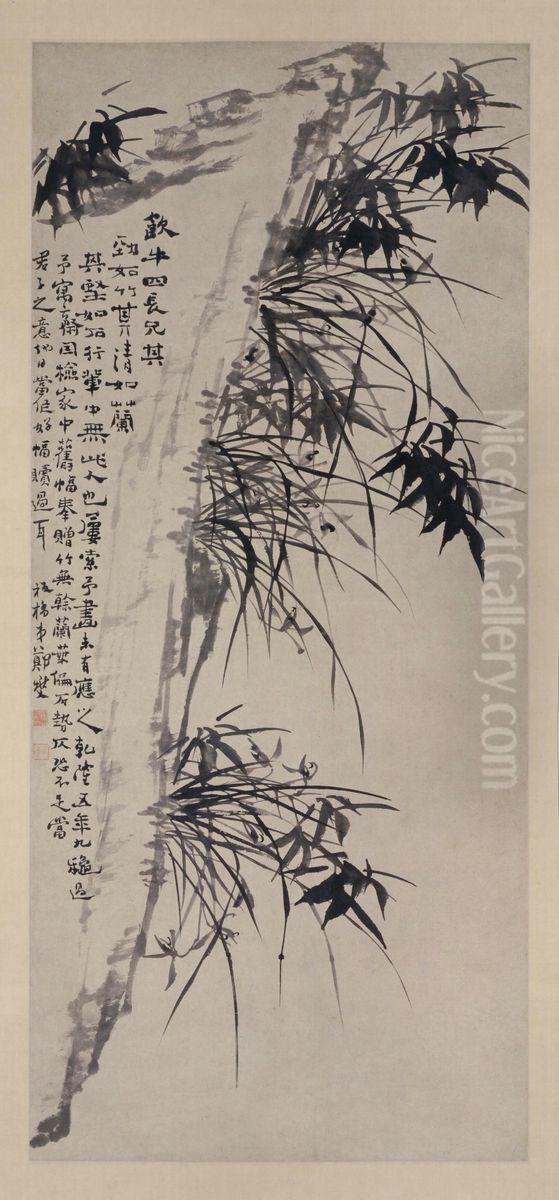 歓牛四長兄其
勁如竹其清如蘭
其堅如石行輩中無此人也屢索予畫未有應之乾隆五年九穐過
予寓齋因撿家中舊幅奉贈竹無餘蘭葉偏石勢仄恐不足當
君子之意他日當作好幅贖過耳 板橋弟鄭燮
NiceArtGallery.com